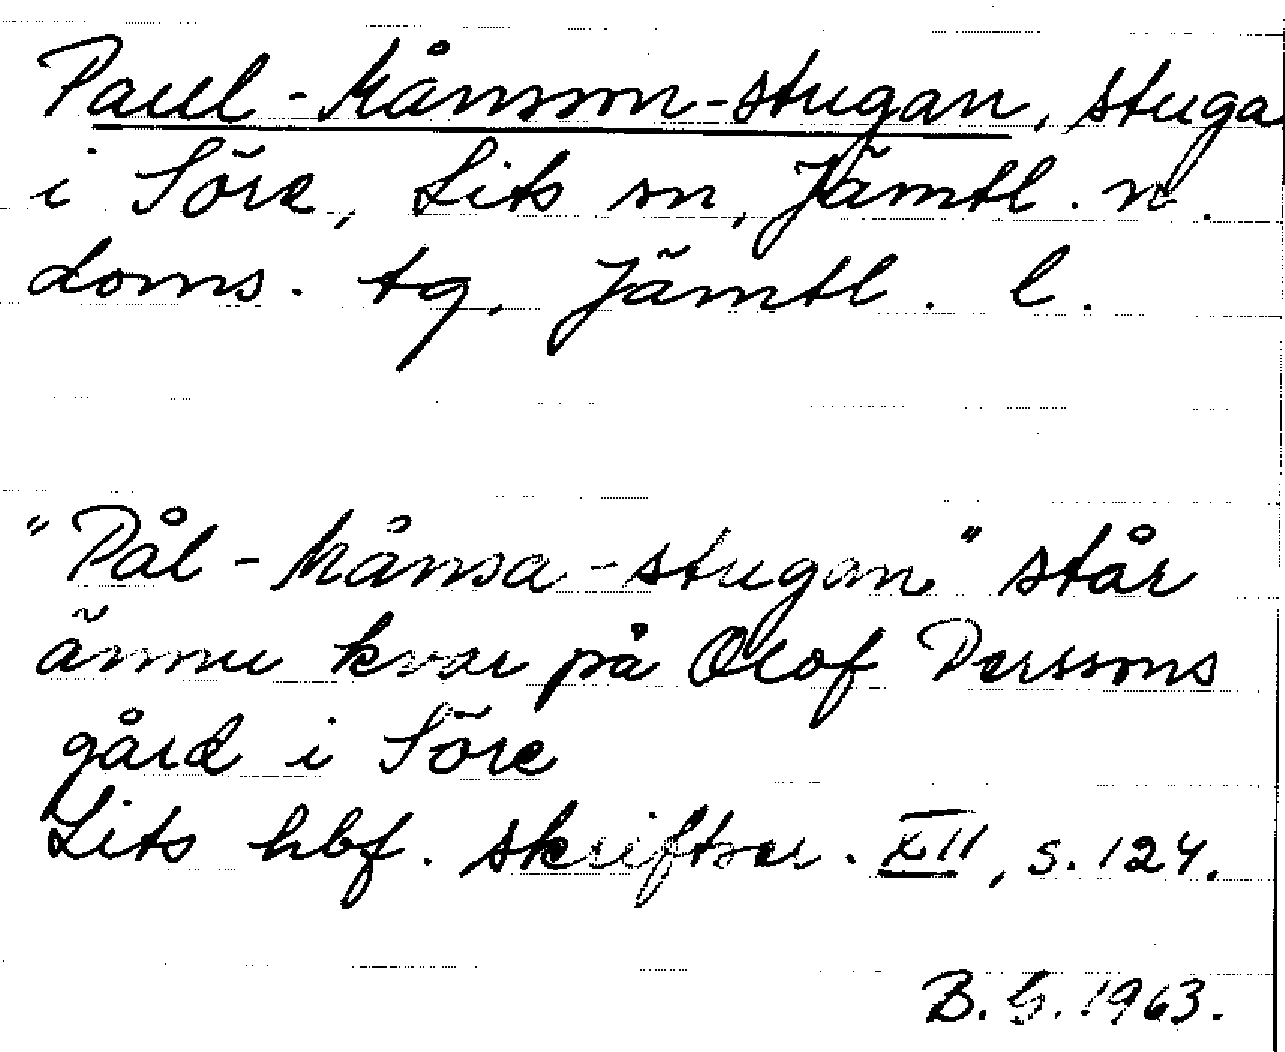 Paul-Månsson-stugan, stuga
i Söre, Lits sn, Jämtl. n.
doms. tg, Jämtl. l.
"Pål-Månsa-stugan" står
ännu kvar på Olof Perssons
gård i Söre
Lits hbf. skriftser. XII, s. 124.
B. G. 1963.